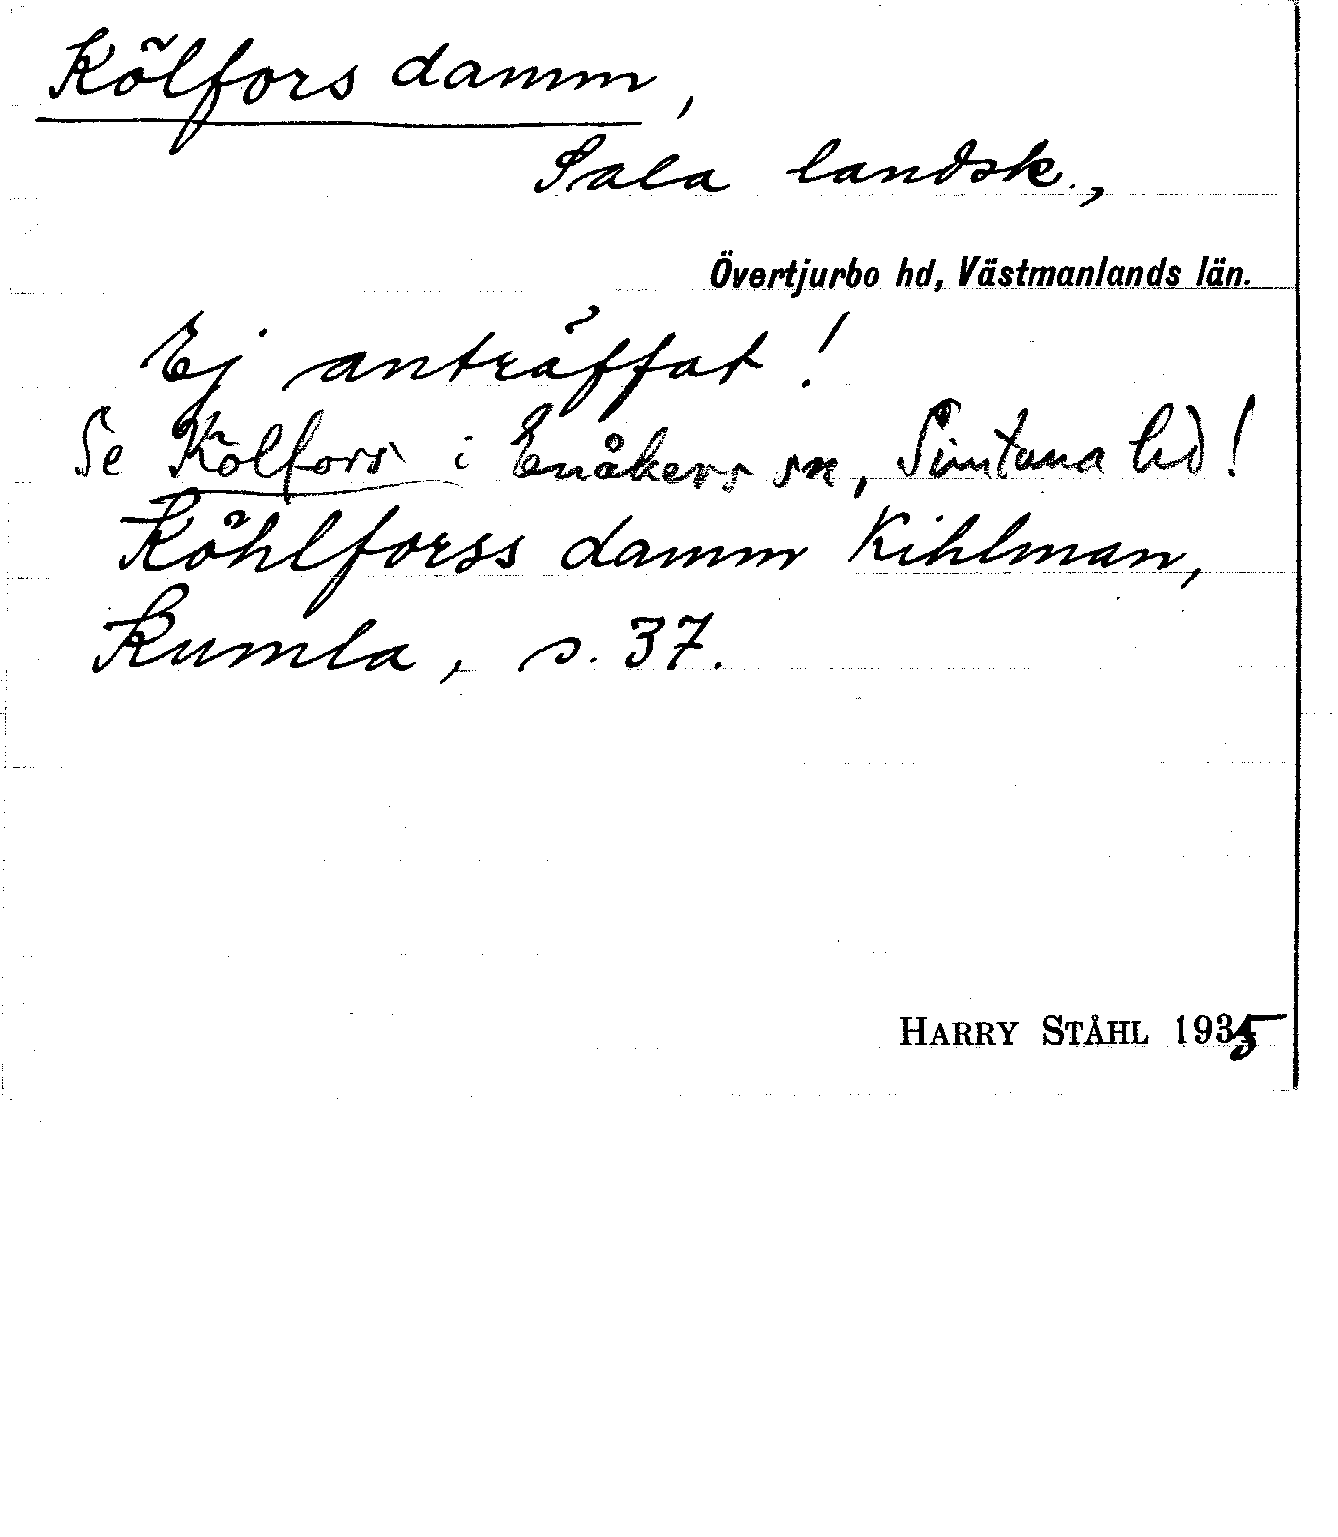 Kölfors damm,
Sala landsk.,
Övertjurbo hd, Västmanlands län.
Ej anträffat!
Se Kölfors i Enåkers sn, Simtuna hd!
Köhlforss damm Kihlman,
Kumla, s. 37.
HARRY STÅHL 1935